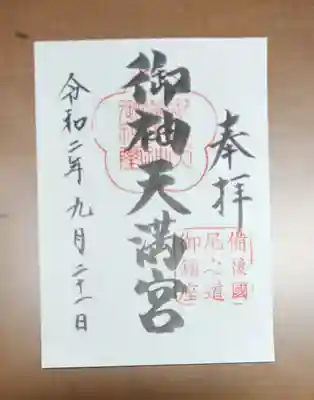 奉拝
備後國
尾の道
御鎮座
御袖天満宮
令和二年九月二十一日